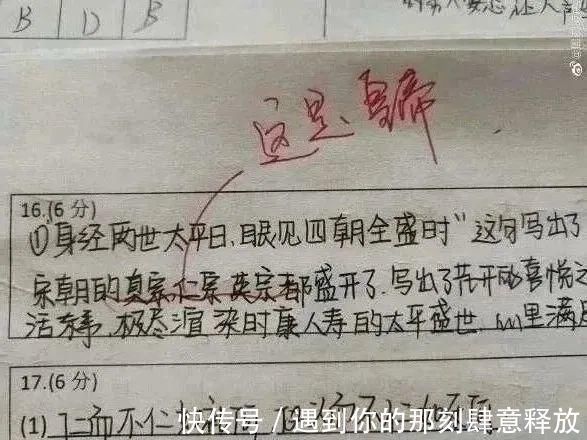 B D B
这是皇帝
16.(6分)
①身经两世太平日,眼见四朝全盛时"这句写出了
宋朝的真宗仁宗英宗都盛开了.写出了花开的喜悦之
活东事,极尽渲染时康人寿的太平盛世.
17.(6分)
(1)仁而不仁
快传号/遇到你的那刻肆意释放